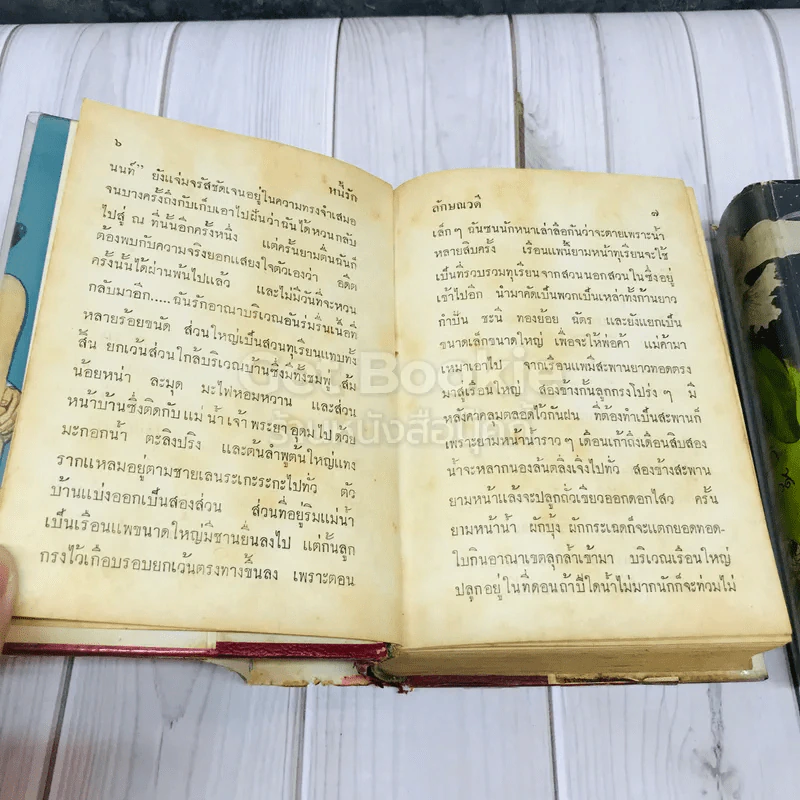 ๖ หนี้รัก
นนท์” ยังแจ่มจรัสชัดเจนอยู่ในความทรงจำเสมอ
จนบางครั้งถึงกับเก็บเอาไปฝันว่าฉันได้หวนกลับ
ไปสู่ ณ ที่นั้นอีกครั้งหนึ่ง แต่ครั้นยามตื่นฉันก็
ต้องพบกับความจริงยอกแสยงใจตัวเองว่า อดีต
ครั้งนั้นได้ผ่านพ้นไปแล้ว และไม่มีวันที่จะหวน
กลับมาอีก.....ฉันรักอาณาบริเวณอันร่มรื่นเนื้อที่
หลายร้อยขนัด ส่วนใหญ่เป็นสวนทุเรียนแทบทั้ง
สิ้น ยกเว้นสวนใกล้บริเวณบ้านซึ่งมีทั้งชมพู่ ส้ม
น้อยหน่า ละมุด มะไฟหอมหวาน และสวน
หน้าบ้านซึ่งติดกับแม่น้ำเจ้าพระยาอุดมไปด้วย
มะกอกน้ำ ตะลิงปริง และต้นลำพูต้นใหญ่แทง
รากแหลมอยู่ตามชายเลนระเกะระกะไปทั่ว ตัว
บ้านแบ่งออกเป็นสองส่วน ส่วนที่อยู่ริมแม่น้ำ
เป็นเรือนแพขนาดใหญ่มีชานยื่นลงไป แต่กั้นลูก
กรงไว้เกือบรอบยกเว้นตรงทางขึ้นลง เพราะตอน
ลักษณวดี ๗
เล็กๆ ฉันซนนักหนาเล่าลือกันว่าจะตายเพราะน้ำ
หลายสิบครั้ง เรือนแพนี้ยามหน้าทุเรียนจะใช้
เป็นที่รวบรวมทุเรียนจากสวนนอกสวนในซึ่งอยู่
เข้าไปอีก นำมาคัดเป็นพวกเป็นเหล่าทั้งก้านยาว
กำปั่น ชะนี ทองย้อย ฉัตร และยังแยกเป็น
ขนาดเล็กขนาดใหญ่ เพื่อจะให้พ่อค้า แม่ค้ามา
เหมาเอาไป จากเรือนแพมีสะพานยาวทอดตรง
มาสู่เรือนใหญ่ สองข้างกั้นลูกกรงโปร่งๆ มี
หลังคาคลุมตลอดไว้กันฝน ที่ต้องทำเป็นสะพานก็
เพราะยามหน้าน้ำราวๆ เดือนเก้าถึงเดือนสิบสอง
น้ำจะหลากนองล้นตลิ่งเจิ่งไปทั่ว สองข้างสะพาน
ยามหน้าแล้งจะปลูกถั่วเขียวออกดอกไสว ครั้น
ยามหน้าน้ำ ผักบุ้ง ผักกระเฉดก็จะแตกยอดทอด-
ใบกินอาณาเขตลุกล้ำเข้ามา บริเวณเรือนใหญ่
ปลูกอยู่ในที่ดอนถ้าปีใดน้ำไม่มากนักก็จะท่วมไม่
Got Booki
ร้านหนังสือ